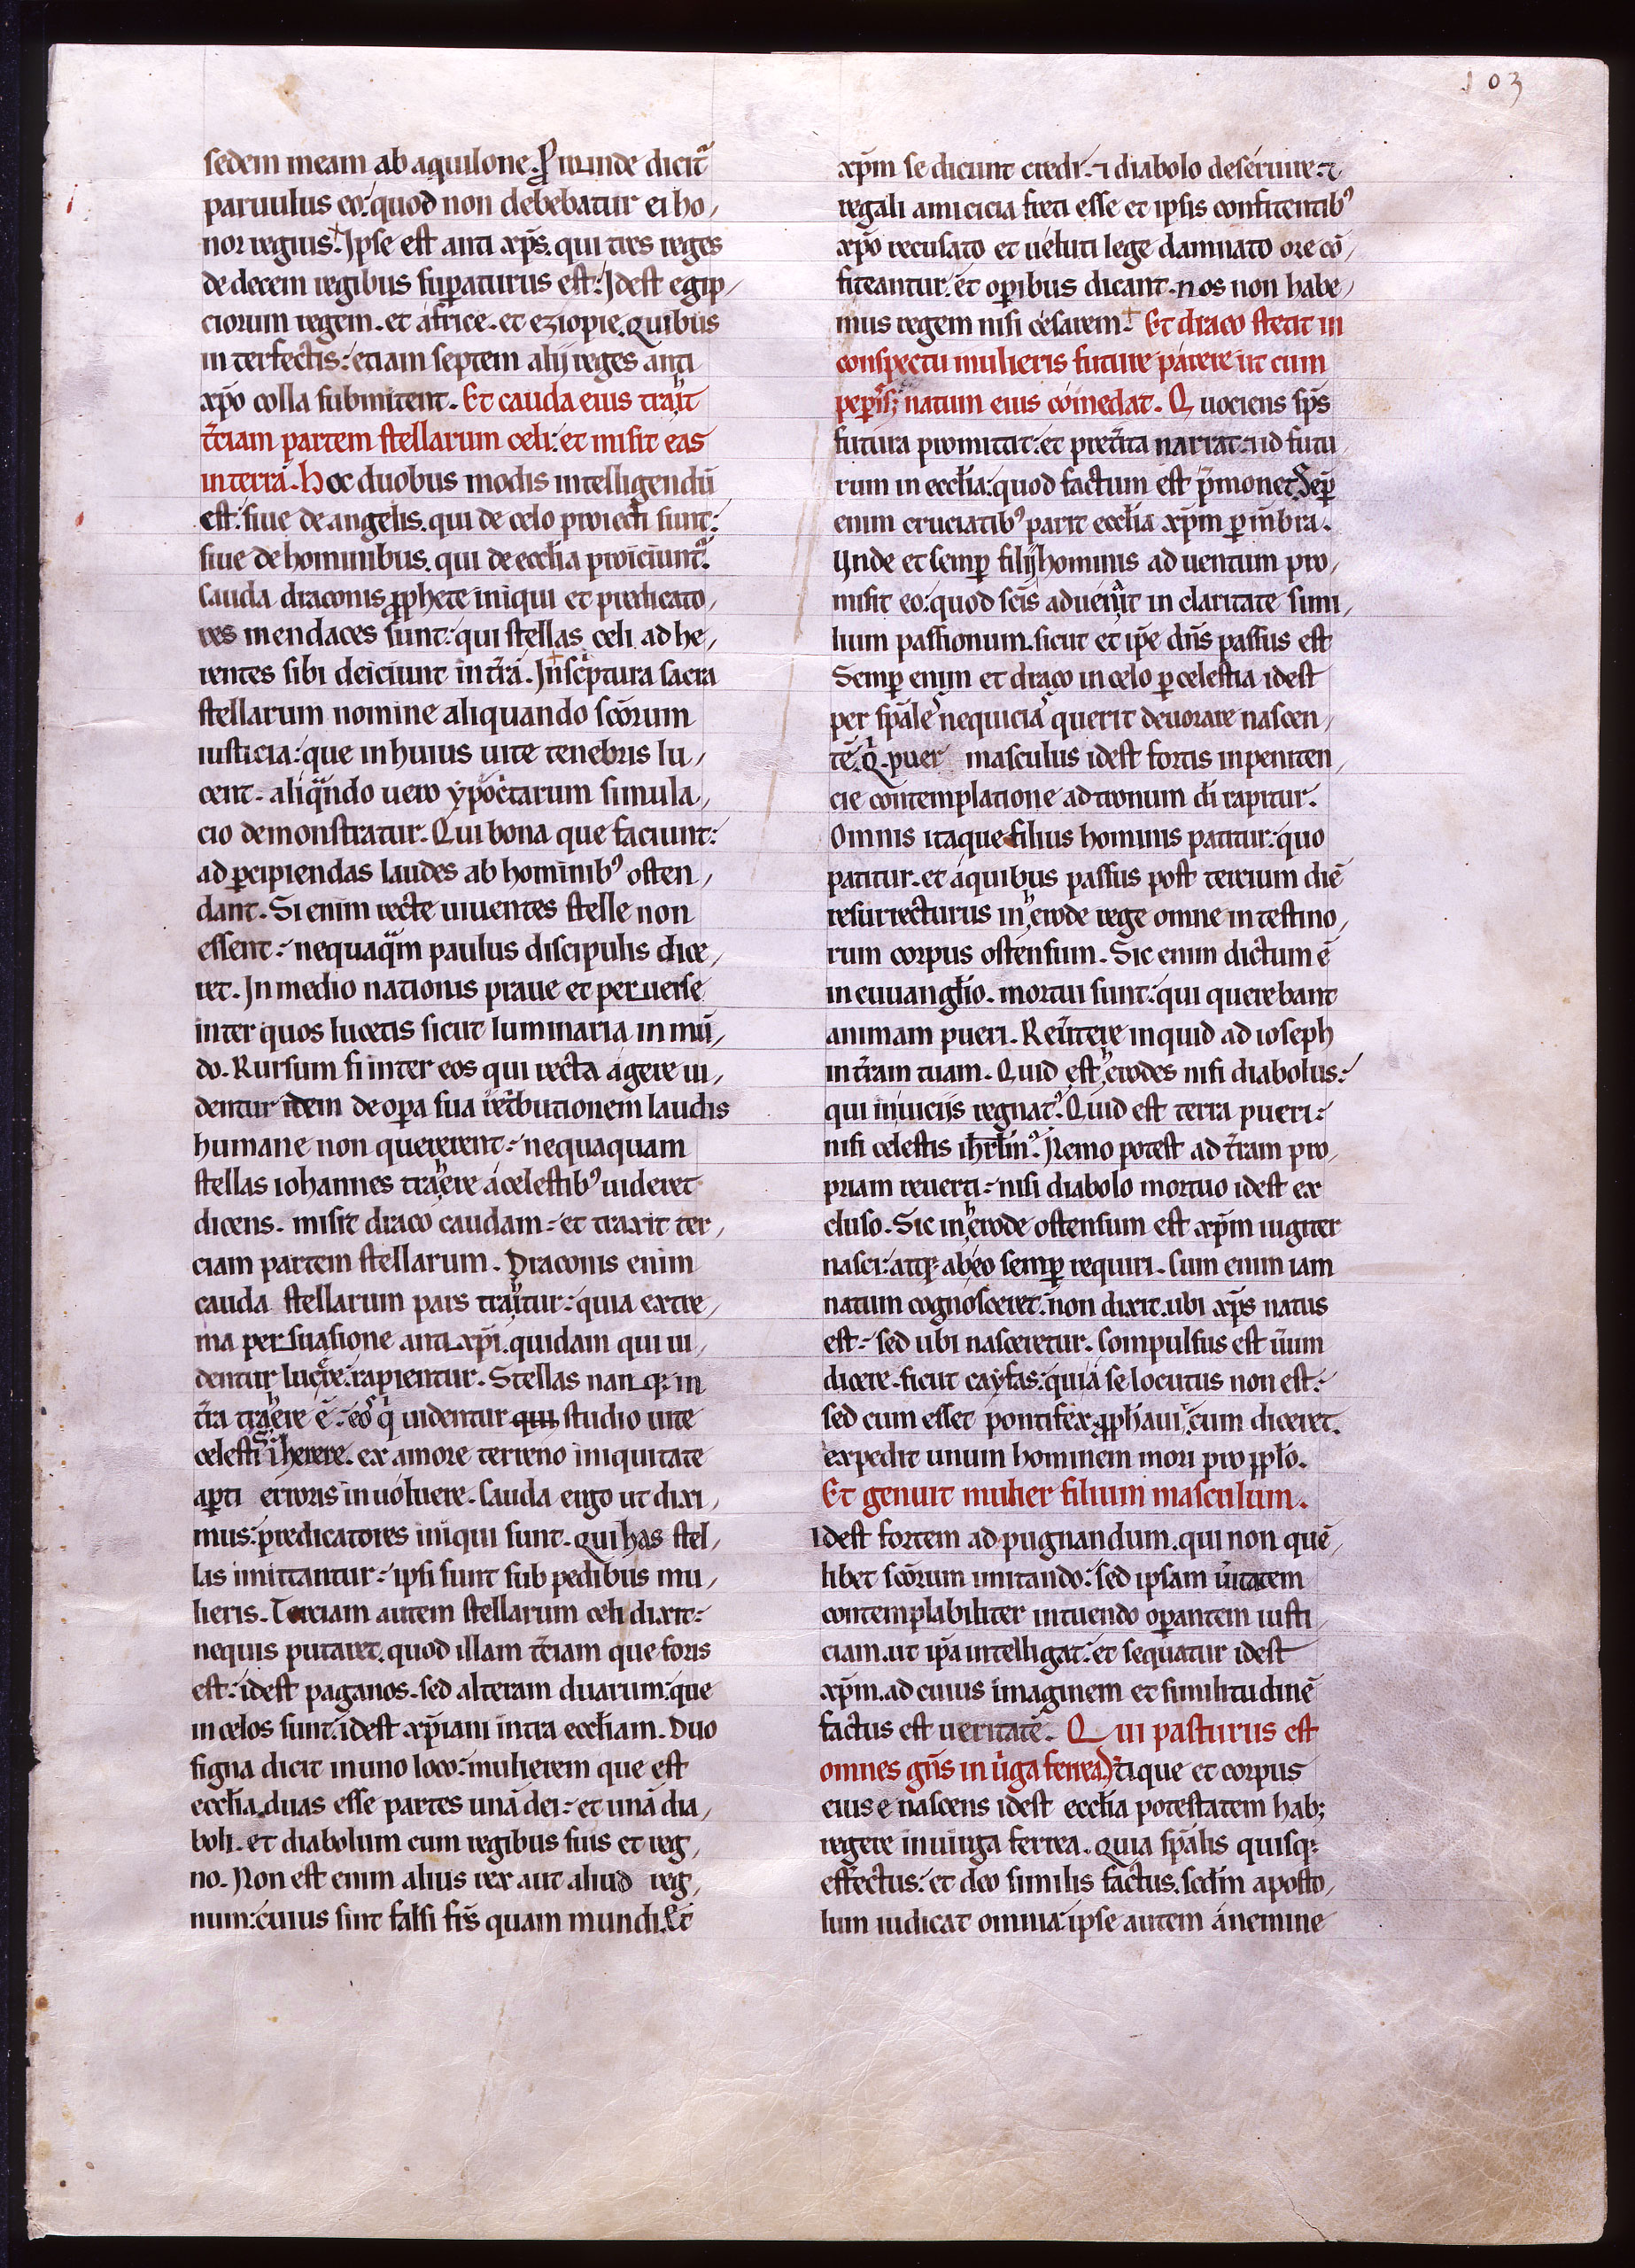 103
sedem meam ab aquilone. Proinde dicit᷑
paruulus eo: quod non debebatur ei ho,
nor regius. Ipse est anti xp̄s. qui tres reges
de decem regibus suꝑaturus est: Idest egip,
ciorum regem. et africe. et eziopie. quibus
in terfectis: etiam septem alij reges anti
xp̄o colla submitent. Et cauda eius trahit
t̄ciam partem stellarum celi: et misit eas
in terrā. Hoc duobus modis intelligendū
est: siue de angelis. qui de celo proiecti sunt:
siue de hominibus. qui de eccl̄ia proiciunt᷑.
Cauda draconis ꝓphete iniqui et predicato,
res mendaces sunt: qui stellas celi ad he,
rentes sibi deiciunt in t̄rā. In scⁱptura sacra
stellarum nomine aliquando sc̄orum
iusticia: que in huius uite tenebris lu,
cent. aliqᵃndo uero ypocⁱtarum simula,
cio demonstratur. Qui bona que faciunt:
ad ꝑcipiendas laudes ab hominibꝰ osten,
dant. Si enim recte uiuentes stelle non
essent: nequaqᵃm paulus discipulis dice,
ret. In medio nationis praue et peruerse
inter quos lucetis sicut luminaria in mū,
do. Rursum si inter eos qui recta agere ui,
dentur idem de oꝑa sua ret̄butionem laudis
humane non quererent: nequaquam
stellas iohannes trahere a celestibꝰ uideret
dicens. misit draco caudam: et traxit ter,
ciam partem stellarum. Draconis enim
cauda stellarum pars trahitur: quia extre,
ma persuasione anti xp̄i. quidam qui ui,
dentur lucere: rapientur. Stellas nanqꝫ in
t̄ra trahere ē: eos qⁱ uidentur qui studio uite
celestis inherere. ex amore terreno iniquitate
aꝑti erroris inuoluere. Cauda ergo ut dixi,
mus: predicatores iniqui sunt. qui has stel,
las imittantur: ipsi sunt sub pedibus mu,
lieris. Terciam autem stellarum celi dixit:
nequis putaret. quod illam t̄ciam que foris
est: idest paganos. sed alteram duarum: que
in celos sunt: idest xp̄iani intra eccl̄iam. Duo
signa dicit in uno loco: mulierem que est
eccl̄ia. duas esse partes unā dei: et unā dia,
boli. et diabolum cum regibus suis et reg,
no. Non est enim alius rex aut aliud reg,
num: cuius sint falsi frs̄ quam mundi. Et
xp̄m se dicunt credr̄. ⁊ diabolo deseruire. ⁊
regali amicicia freti esse et ipsis confitentibꝰ
xp̄o recusato et ueluti lege damnato ore cō,
fiteantur. et oꝑibus dicant. nos non habe,
mus regem nisi cesarem. Et draco stetit in
conspectu mulieris future parere ut cum
peꝑisꝫ natum eius comedat. Quociens sp̄s
futura promitat: et pret̄ita narrat: id futu
rum in eccl̄ia: quod factum est p̄monet. Semꝑ
enim cruciatibꝰ parit eccl̄ia xp̄m ꝑ mēbra.
Unde et semꝑ filij hominis ad uentum pro,
misit eo: quod sc̄is aduenᵃit in claritate simi,
lium passionum. sicut et ip̄e dn̄s passus est
Semꝑ enim et draco in celo ꝑ celestia idest
per sp̄ales nequicias querit deuorare nascen,
tē. qⁱ puer masculus idest fortis in peniten,
cie contemplatione ad tronum di rapitur.
Omnis itaque filius hominis patitur: quo
patitur. et a quibus passus post tercium diē
resurrecturus in herode rege omne intestino,
rum corpus ostensum. Sic enim dictum ē
in euuangl̄io. mortui sunt: qui querebant
animam pueri. Reu̔tere inquid ad ioseph
in t̄ram tuam. Quid est herodes nisi diabolus:
qui in uicijs regnat. Quid est terra pueri:
nisi celestis ihrl̄m. Nemo potest ad t̄ram pro,
priam reuerti: nisi diabolo mortuo idest ex
cluso. Sic in herode ostensum est xp̄m iugiter
nasci: atqꝫ ab eo semꝑ requiri. Cum enim iam
natum cognosceret. non dixit. ubi xp̄s natus
est: sed ubi nasceretur. Compulsus est ūum
dicere. sicut cayfas: quia se locutus non est:
sed cum esset pontifex ꝓphaui. cum diceret.
expedit unum hominem mori pro ppl̄o.
Et genuit mulier filium masculum.
Idest fortem ad pugnandum. qui non quē,
libet sc̄orum imitando: sed ipsam ūitatem
contemplabiliter intuendo oꝑantem iusti,
ciam. ut ip̄a intelligat: et sequatur idest
xp̄m. ad cuius imaginem et similitudinē
factus est ueritatē. Qui pasturus est
omnes gn̄s in ūga ferrea. Utique et corpus
eius enascens idest eccl̄ia potestatem habꝫ
regere in uirga ferrea. quia sp̄alis quisqꝫ
effectus: et deo similis factus. sedm̄ aposto,
lum iudicat omnia: ipse autem a nemine